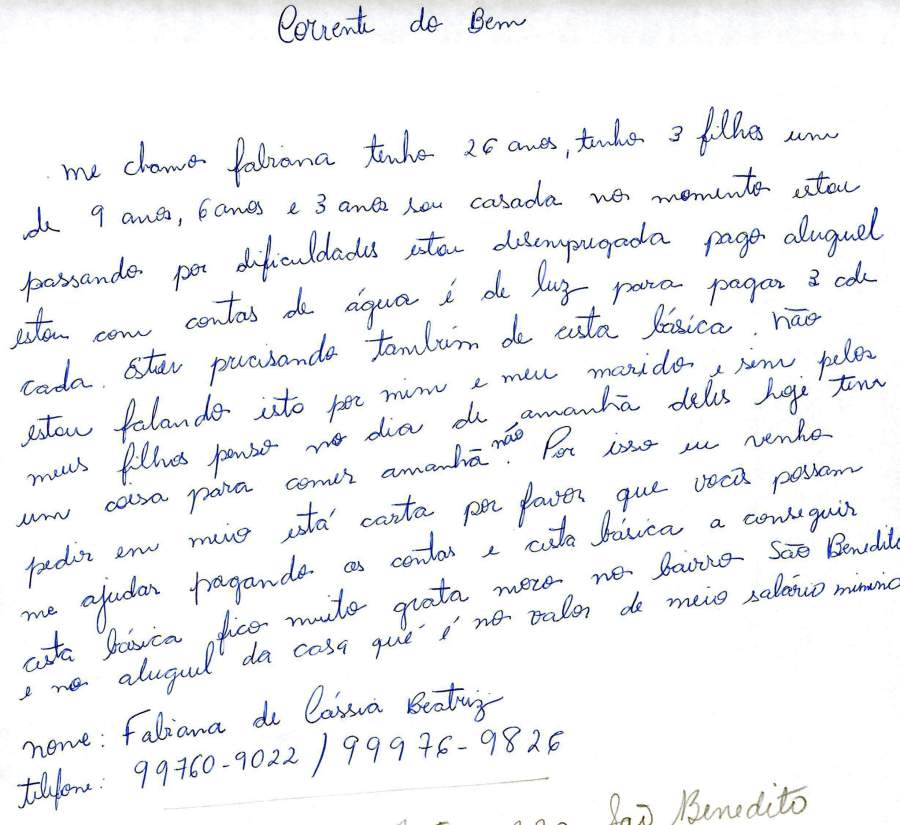 Corrente do Bem
me chamo fabiana tenho 26 anos, tenho 3 filhos um
de 9 anos, 6 anos e 3 anos sou casada no momento estou
passando por dificuldades estou desempregada pago aluguel
estou com contas de água é de luz para pagar 3 cde
cada. Estou precisando também de cesta básica. não
estou falando isto por mim e meu marido e sim pelos
meus filhos penso no dia de amanhã deles hoje tem
um coisa para comer amanhã não. Por isso eu venho
pedir em meio está carta por favor que vocês possam
me ajudar pagando as contas e cesta básica a conseguir
cesta básica fico muito grata moro no bairro São Benedito
e no aluguel da casa que é no valor de meio salário minimo
nome: Fabiana de Cássia Beatriz
telefone: 99760-9022 / 99976-9826
São Benedito